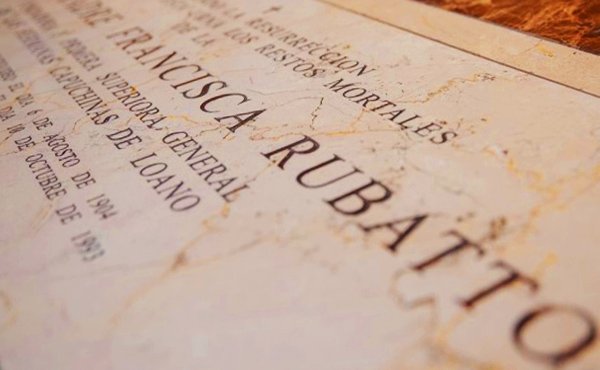 LA RESURRECCION
LOS RESTOS MORTALES
DE LA
MADRE FRANCISCA RUBATTO
Y PRIMERA SUPERIORA GENERAL
HERMANAS CAPUCHINAS DE LOANO
EL DIA 6 DE AGOSTO DE 1904
DIA 10 DE OCTUBRE DE 1993